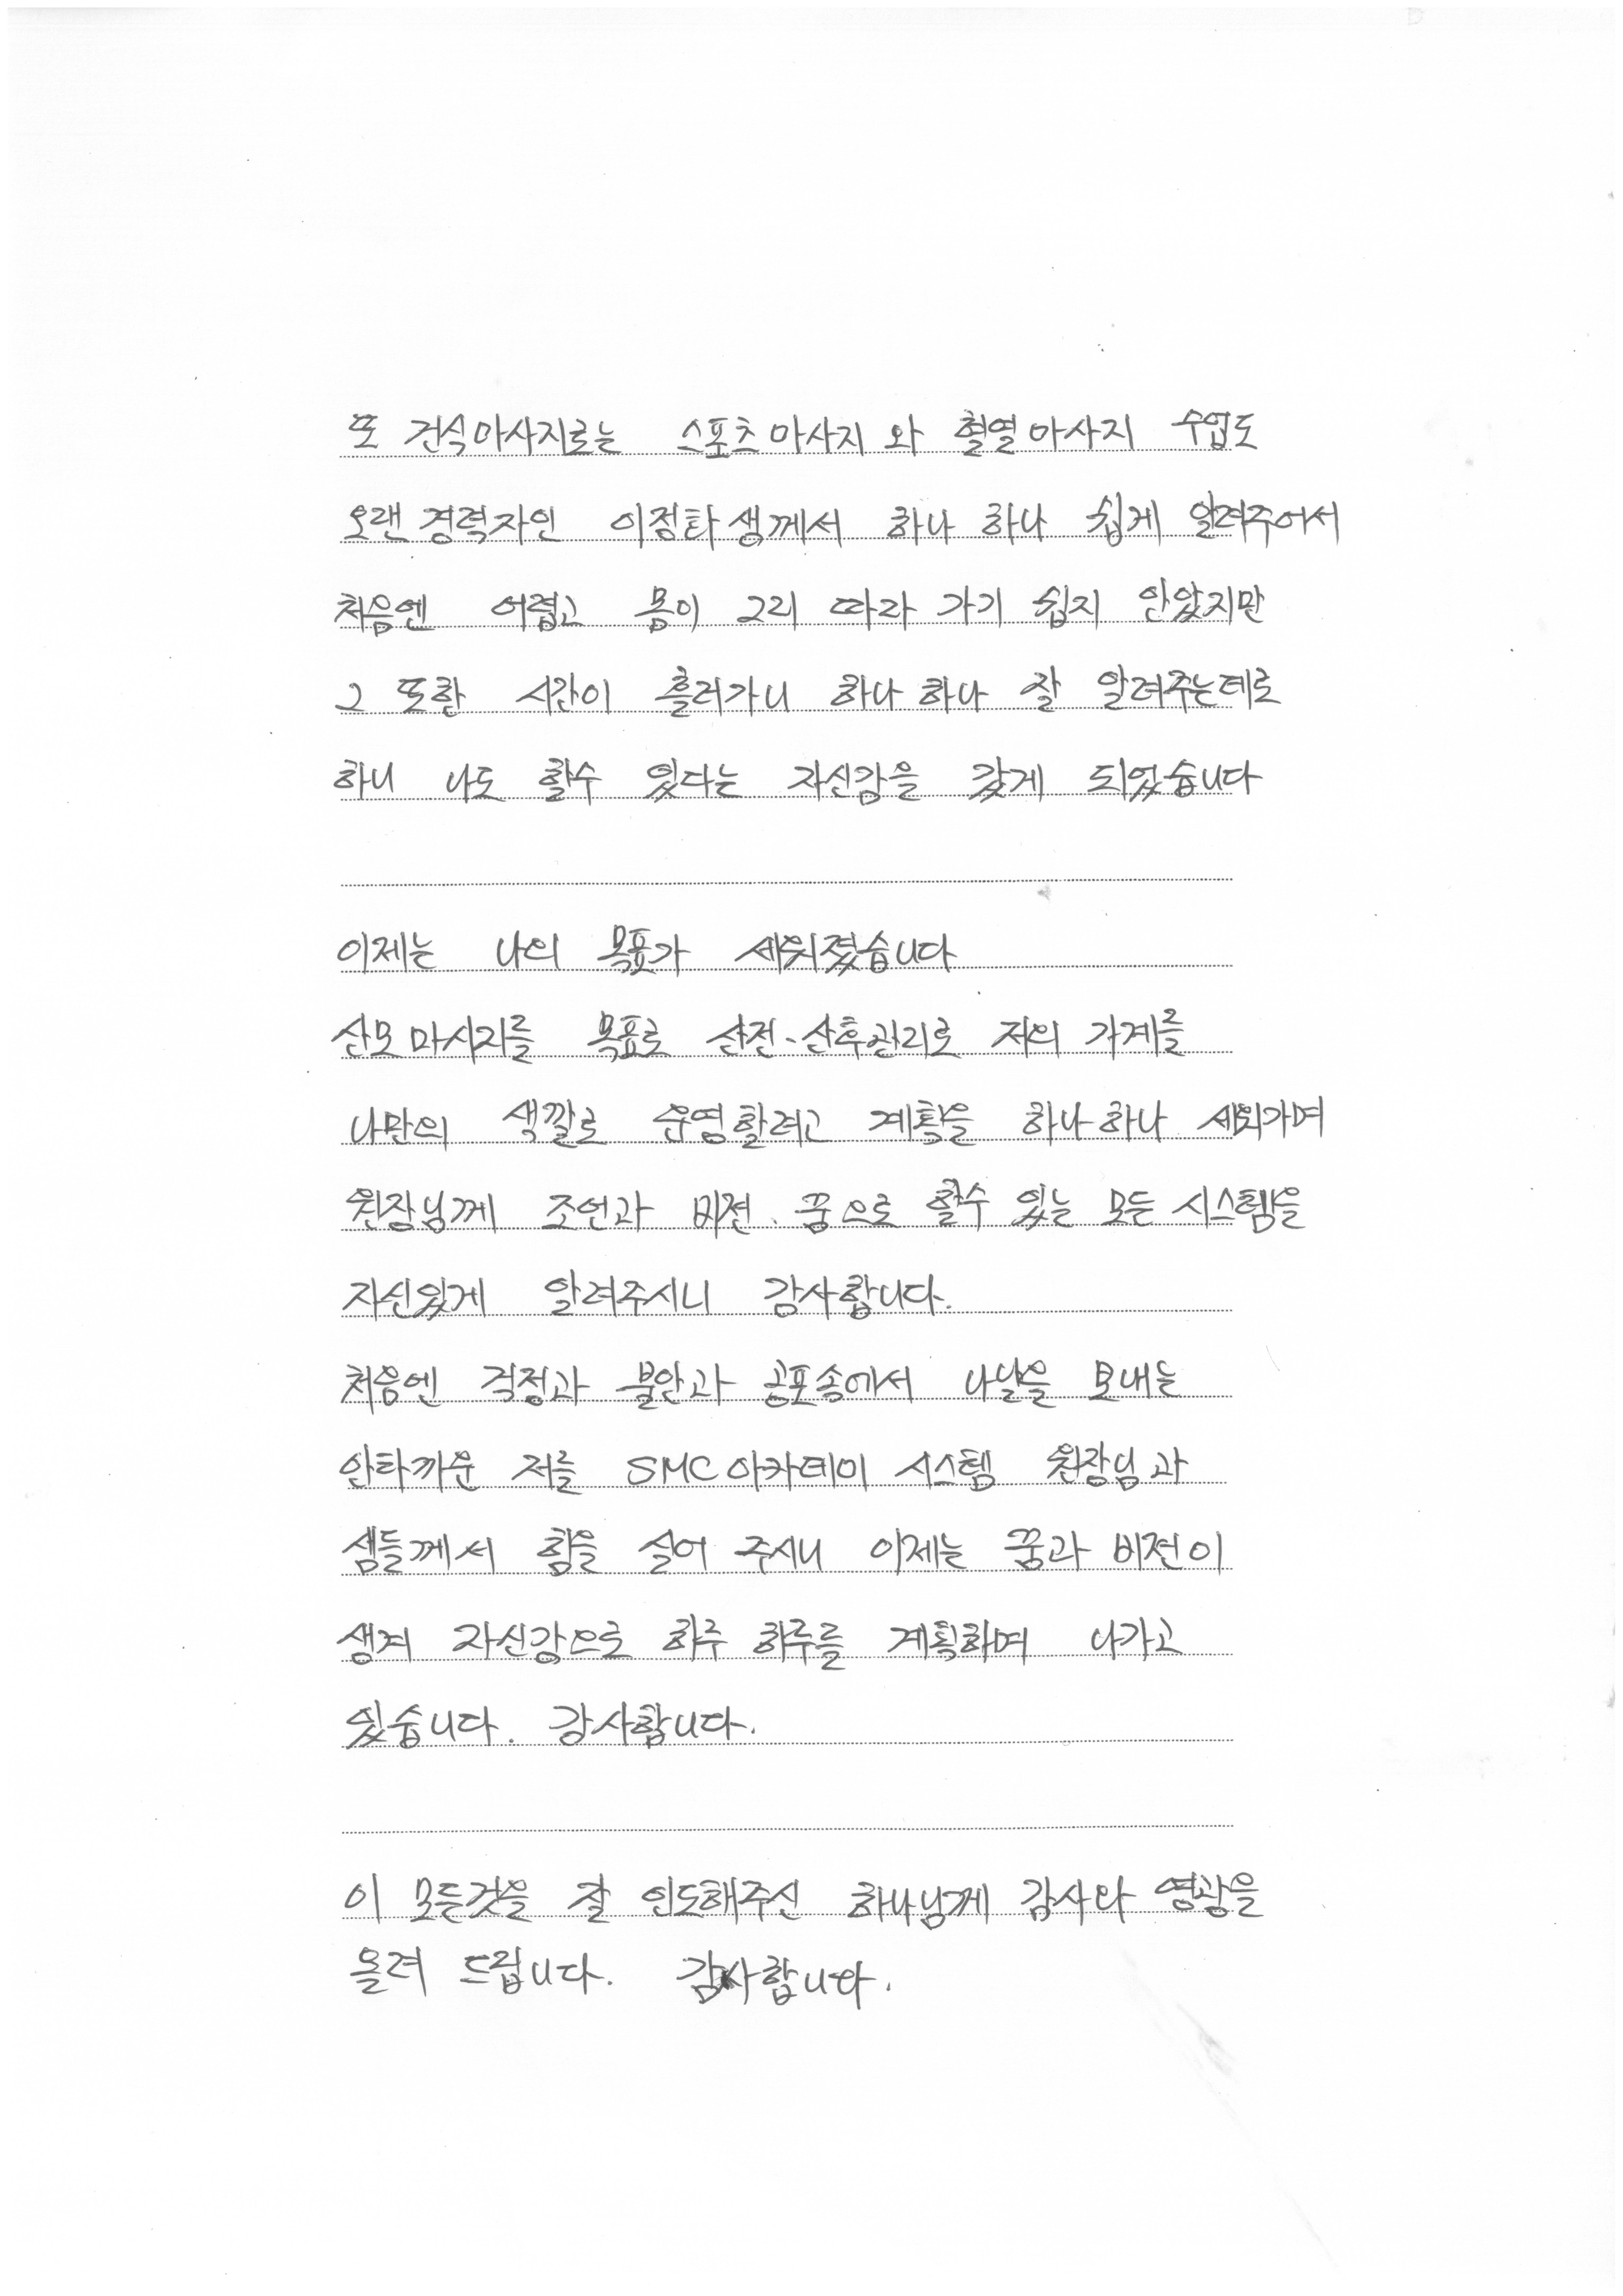 또 건식마사지로는 스포츠마사지와 혈열마사지 수업도
오랜경력자인 이점타샘께서 하나 하나 쉽게 알려주어서
처음엔 어렵고 몸이 그리 따라 가기 쉽지 안았지만
그 또한 시간이 흘러가니 하나하나 잘 알려주는데로
하니 나도 할수 있다는 자신감을 갖게 되었습니다
이제는 나의 목표가 세워졌습니다
산모마사지를 목표로 산전-산후관리로 저의 가게를
나만의 색깔로 운영할려고 계획을 하나하나 세워가며
원장님께 조언과 비젼. 꿈으로 할수 있는 모든 시스템을
자신있게 알려주시니 감사합니다.
처음엔 걱정과 불안과 공포속에서 나날을 보내는
안타까운 저를 SMC아카데미 시스템 원장님과
샘들께서 힘을 실어 주시니 이제는 꿈과 비젼이
생겨 자신감으로 하루 하루를 계획하며 나가고
있습니다. 감사합니다.
이 모든것을 잘 인도해주신 하나님께 감사와 영광을
올려 드립니다. 감사합니다.